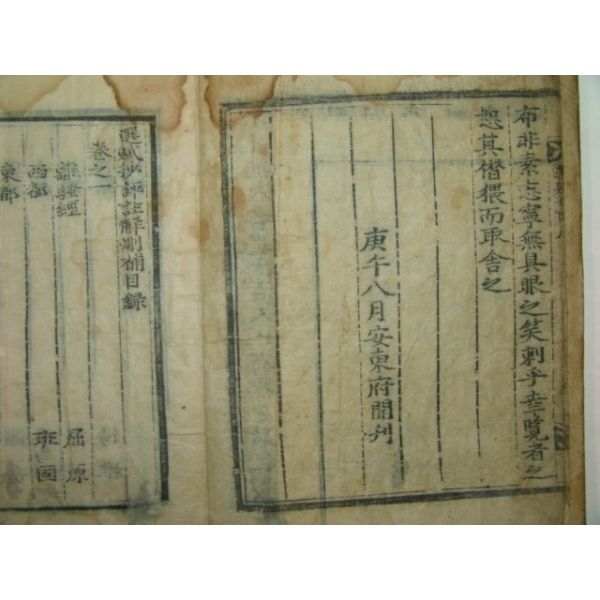 布非素志寧無具眼之笑刺乎幸覽者之
恕其僭猥而取舍之
庚午八月安東府開刊
選賦抄評註解刪補目錄
卷之一
離騷經 屈原
西都 班固
東都